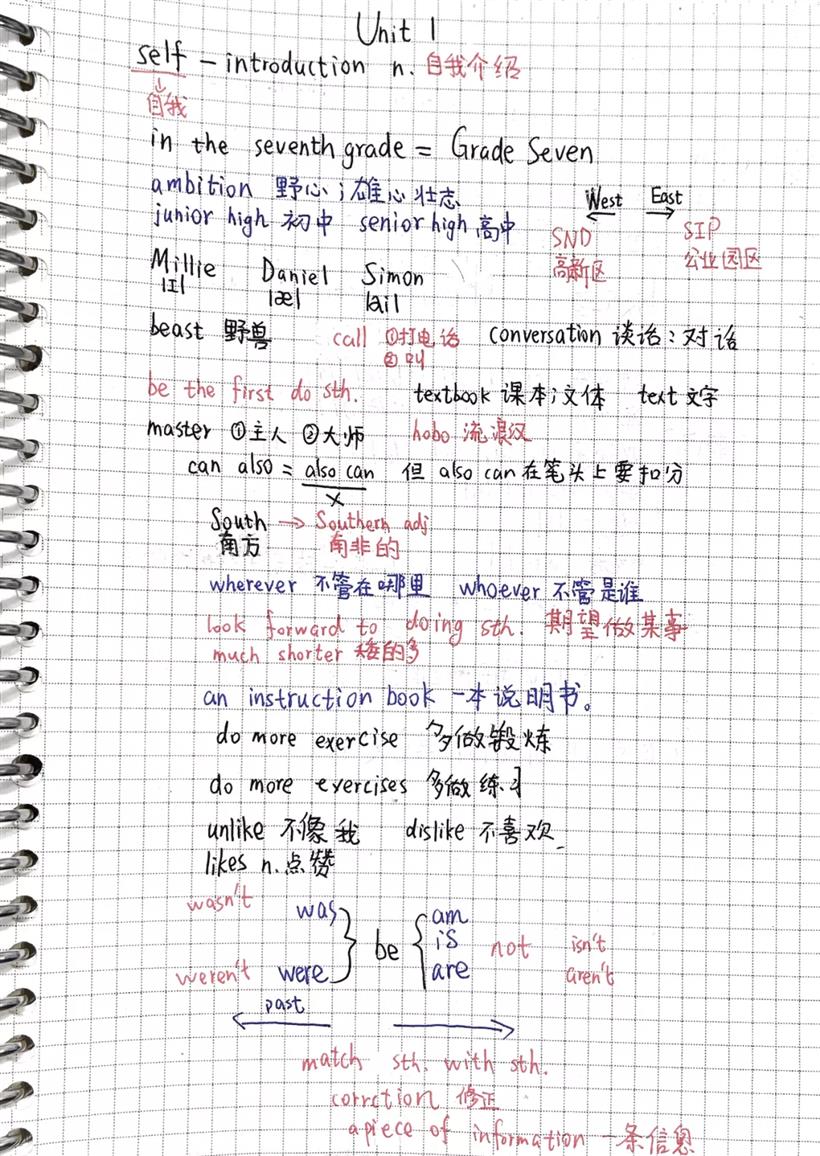 Unit 1
self - introduction n. 自我介绍
↓
自我
in the seventh grade = Grade Seven
ambition 野心；雄心壮志
West East
← →
junior high 初中 senior high 高中
SND SIP
高新区 公业园区
Millie Daniel Simon
|ɪ| |æ| |ai|
beast 野兽 call ①打电话 conversation 谈话：对话
②叫
be the first do sth. textbook 课本；文体 text 文字
master ①主人 ②大师 hobo 流浪汉
can also = also can 但 also can 在笔头上要扣分
×
South → Southern adj
南方 南非的
wherever 不管在哪里 whoever 不管是谁
look forward to doing sth. 期望做某事
much shorter 矮的多
an instruction book 一本说明书。
do more exercise 多做锻炼
do more exercises 多做练习
unlike 不像我 dislike 不喜欢
likes n.点赞
wasn't was } be { am
is not isn't
weren't were are aren't
past
← →
match sth. with sth.
corrction 修正
a piece of information 一条信息